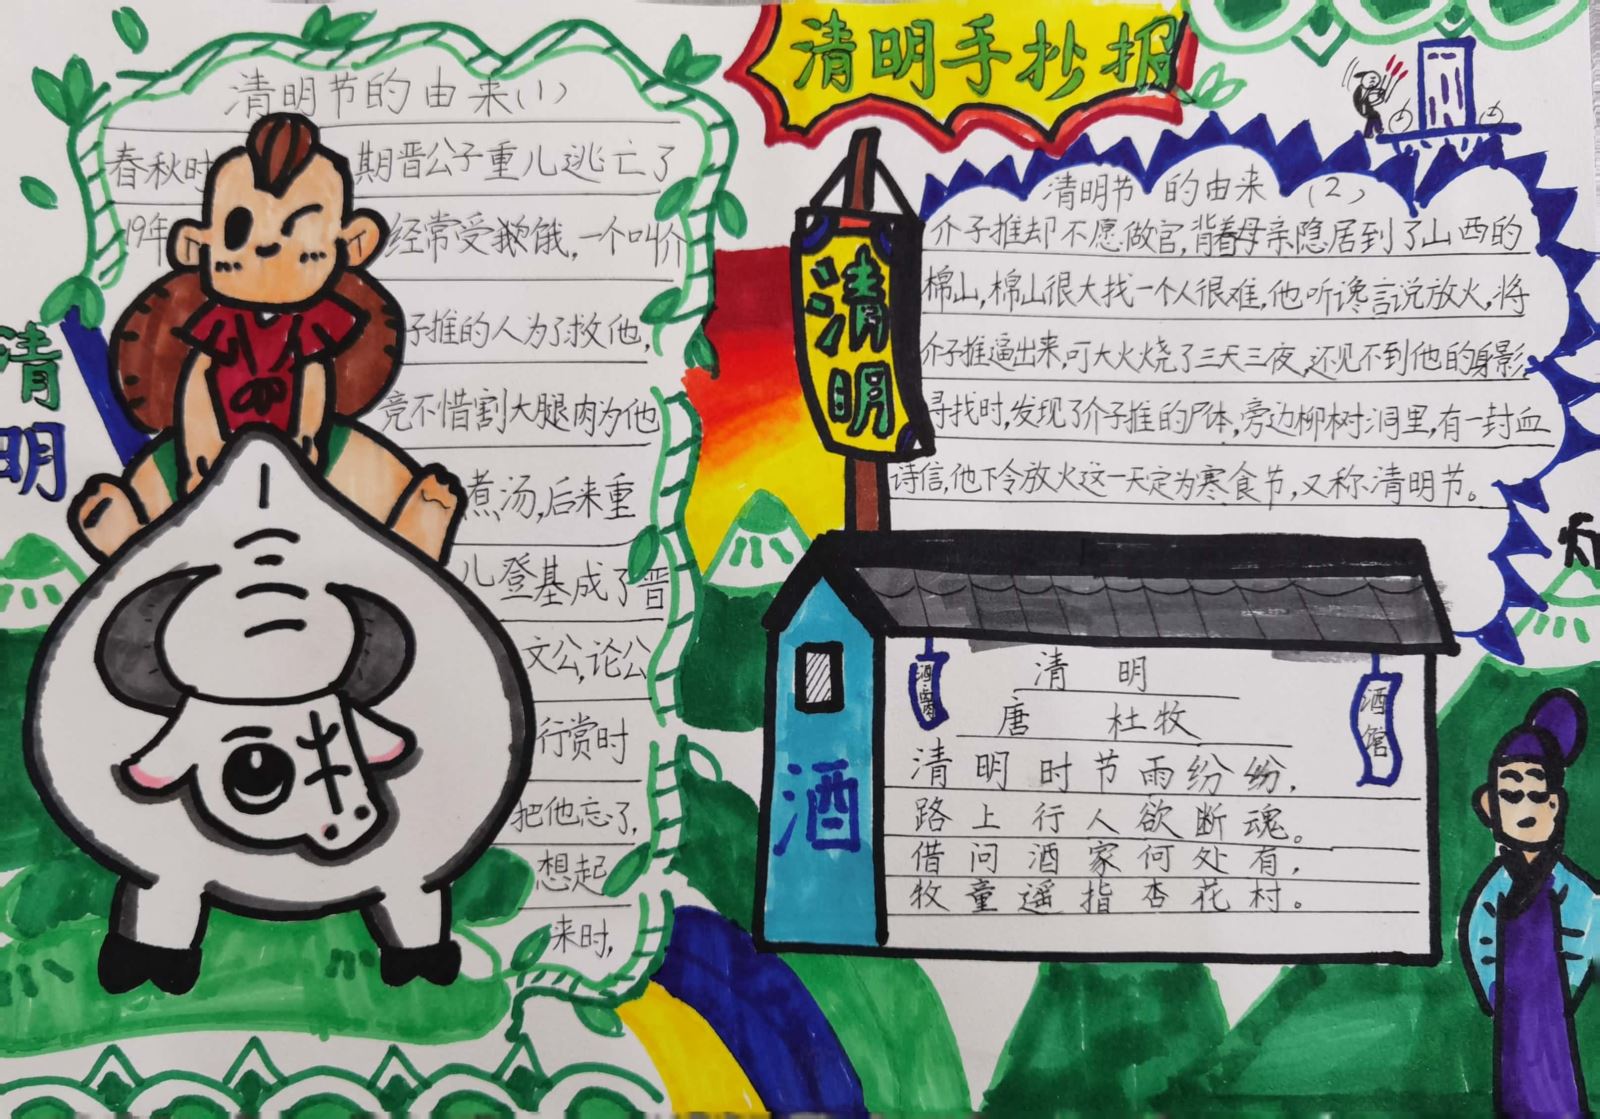 清明手抄报
清明
清明节的由来(1)
春秋时期晋公子重儿逃亡了
19年经常受饥饿,一个叫介
子推的人为了救他,
竟不惜割大腿肉为他
煮汤,后来重
儿登基成了晋
文公,论公
行赏时
把他忘了,
想起
来时,
清明
清明节的由来(2)
介子推却不愿做官,背着母亲隐居到了山西的
棉山,棉山很大找一个人很难,他听谗言说放火,将
介子推逼出来,可大火烧了三天三夜,还见不到他的身影,
寻找时,发现了介子推的尸体,旁边柳树洞里,有一封血
诗信,他下令放火这一天定为寒食节,又称清明节。
酒
酒馆
清明
唐 杜牧
清明时节雨纷纷,
路上行人欲断魂。
借问酒家何处有,
牧童遥指杏花村。